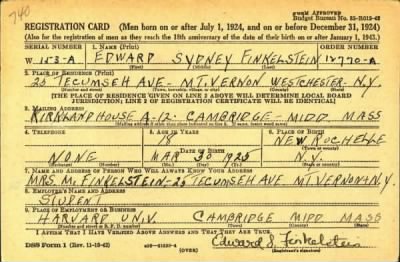 740
FORM APPROVED
Budget Bureau No. 33-R012-42
REGISTRATION CARD (Men born on or after July 1, 1924, and on or before December 31, 1924)
(Also for the registration of men as they reach the 18th anniversary of the date of their birth on or after January 1, 1943.)
SERIAL NUMBER 1. NAME (Print) ORDER NUMBER
W 153-A EDWARD SYDNEY FINKELSTEIN 12770-A
(First) (Middle) (Last)
2. PLACE OF RESIDENCE (Print)
25 TECUMSEH AVE - MT. VERNON WESTCHESTER - N.Y.
(THE PLACE OF RESIDENCE GIVEN ON LINE 2 ABOVE WILL DETERMINE LOCAL BOARD
JURISDICTION; LINE 2 OF REGISTRATION CERTIFICATE WILL BE IDENTICAL)
3. MAILING ADDRESS
KIRKLAND HOUSE A-12. CAMBRIDGE - MIDD. MASS
4. TELEPHONE 5. AGE IN YEARS 6. PLACE OF BIRTH
18 NEW ROCHELLE
DATE OF BIRTH (Town or county)
NONE MAR 30 1925 N.Y.
(Exchange) (Number) (Mo.) (Day) (Yr.) (State or country)
7. NAME AND ADDRESS OF PERSON WHO WILL ALWAYS KNOW YOUR ADDRESS
MRS M. FINKELSTEIN - 25 TECUMSEH AVE MT. VERNON N.Y.
8. EMPLOYER'S NAME AND ADDRESS
STUDENT
9. PLACE OF EMPLOYMENT OR BUSINESS
HARVARD UNIV. CAMBRIDGE MIDD. MASS
(Number and street or R. F. D. number) (Town) (County) (State)
I AFFIRM THAT I HAVE VERIFIED ABOVE ANSWERS AND THAT THEY ARE TRUE.
DSS Form 1 (Rev. 11-16-42) (OVER) Edward S. Finkelstein
(Registrant's signature)